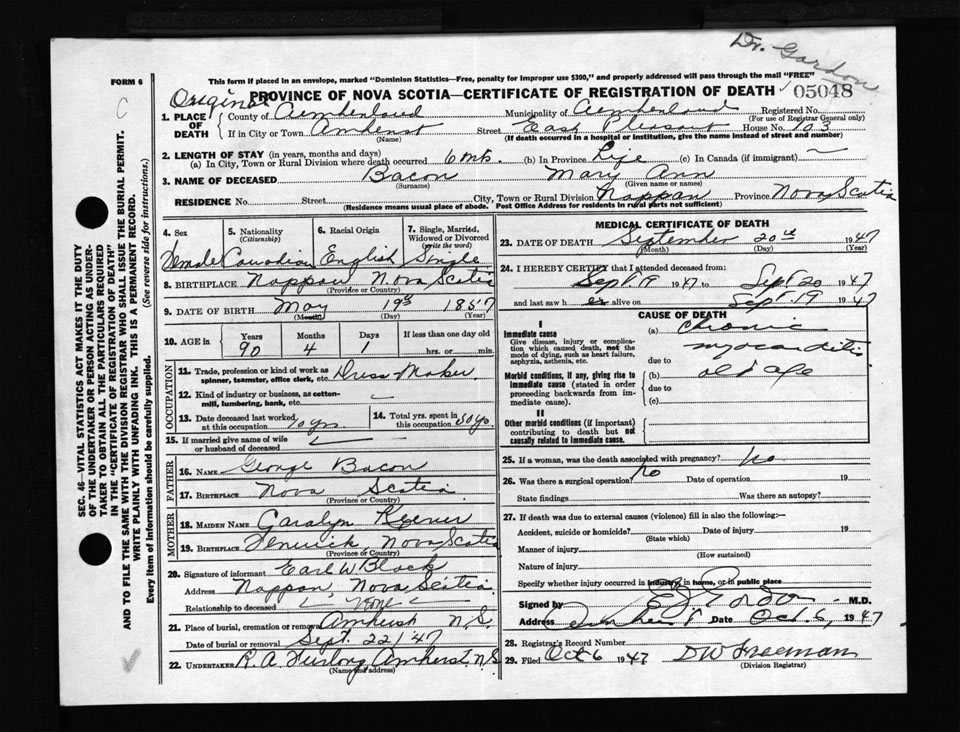 Dr. Gordon
FORM 6
C
This form if placed in an envelope, marked "Dominion Statistics—Free, penalty for improper use $300," and properly addressed will pass through the mail "FREE"
Original
PROVINCE OF NOVA SCOTIA—CERTIFICATE OF REGISTRATION OF DEATH
05048
1. PLACE OF DEATH
County of Cumberland Municipality of Cumberland Registered No.
(For use of Registrar General only)
If in City or Town Amherst Street East Pleasant House No. 103
(Name) (If death occurred in a hospital or institution, give the name instead of street and number)
2. LENGTH OF STAY (in years, months and days)
(a) In City, Town or Rural Division where death occurred 6 mts. (b) In Province Life (c) In Canada (if immigrant) —
3. NAME OF DECEASED Bacon Mary Ann
(Surname) (Given name or names)
RESIDENCE No. Street City, Town or Rural Division Nappan Province Nova Scotia
(Residence means usual place of abode. Post Office Address for residents in rural parts not sufficient)
4. Sex 5. Nationality (Citizenship) 6. Racial Origin 7. Single, Married, Widowed or Divorced (write the word)
Female Canadian English Single
8. BIRTHPLACE Nappan Nova Scotia
(Province or Country)
9. DATE OF BIRTH May 19th 1857
(Month) (Day) (Year)
10. AGE in Years Months Days If less than one day old
90 4 1 hrs. or min.
OCCUPATION
11. Trade, profession or kind of work as spinner, teamster, office clerk, etc. Dress Maker
12. Kind of industry or business, as cotton-mill, lumbering, bank, etc. —
13. Date deceased last worked at this occupation 10 yrs
14. Total yrs. spent in this occupation 50 yo
15. If married give name of wife or husband of deceased
FATHER
16. NAME George Bacon
17. BIRTHPLACE Nova Scotia
(Province or Country)
MOTHER
18. MAIDEN NAME
19. BIRTHPLACE Fenwick, Nova Scotia
(Province or Country)
20. Signature of informant Earl W. Black
Address Nappan, Nova Scotia
Relationship to deceased None
21. Place of burial, cremation or removal Amherst N.S.
Date of burial or removal Sept. 22/47
22. UNDERTAKER R. A. Furlong Amherst, N.S
(Name and address)
MEDICAL CERTIFICATE OF DEATH
23. DATE OF DEATH September 20th 1947
(Month) (Day) (Year)
24. I HEREBY CERTIFY that I attended deceased from
Sept. 9 1947 to Sept 20 1947
and last saw her alive on Sept. 19 1947
CAUSE OF DEATH
I
Immediate cause
Give disease, injury or complication which caused death, not the mode of dying, such as heart failure, asphyxia, asthenia, etc.
(a) Chronic
myocarditis
due to
Morbid conditions, if any, giving rise to immediate cause (stated in order proceeding backwards from immediate cause).
(b) old age
due to
(c)
II
Other morbid conditions (if important) contributing to death but not causally related to immediate cause.
25. If a woman, was the death associated with pregnancy? No
26. Was there a surgical operation? No Date of operation 19
State findings Was there an autopsy?
27. If death was due to external causes (violence) fill in also the following:—
Accident, suicide or homicide? Date of injury 19
(State which)
Manner of injury
(How sustained)
Nature of injury
Specify whether injury occurred in industry, in home, or in public place
Signed by M.D.
Address Amherst Date Oct. 6, 1947
28. Registrar's Record Number
29. Filed Oct 6 1947 DW Freeman
(Division Registrar)
SEC. 46—VITAL STATISTICS ACT MAKES IT THE DUTY
OF THE UNDERTAKER OR PERSON ACTING AS UNDER-
TAKER TO OBTAIN ALL THE PARTICULARS REQUIRED
IN THE "CERTIFICATE OF REGISTRATION OF DEATH"
AND TO FILE THE SAME WITH THE DIVISION REGISTRAR WHO SHALL ISSUE THE BURIAL PERMIT.
WRITE PLAINLY WITH UNFADING INK. THIS IS A PERMANENT RECORD.
Every item of Information should be carefully supplied. (See reverse side for instructions.)